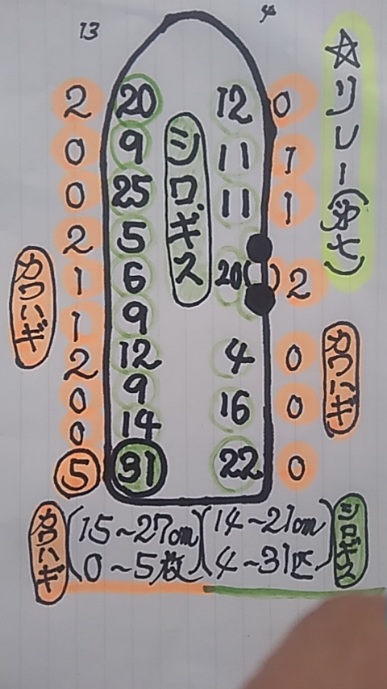 13
☆リレー(第七)
シロギス
カワハギ
カワハギ
2 20 12 0
0 9 11 1
0 25 11 1
2 5
1 6 20( ) 2
1 9
2 12 4 0
0 9
0 14 16 0
5 31 22 0
カワハギ (15~27cm)(14~21cm) シロギス
0~5枚 4~31匹